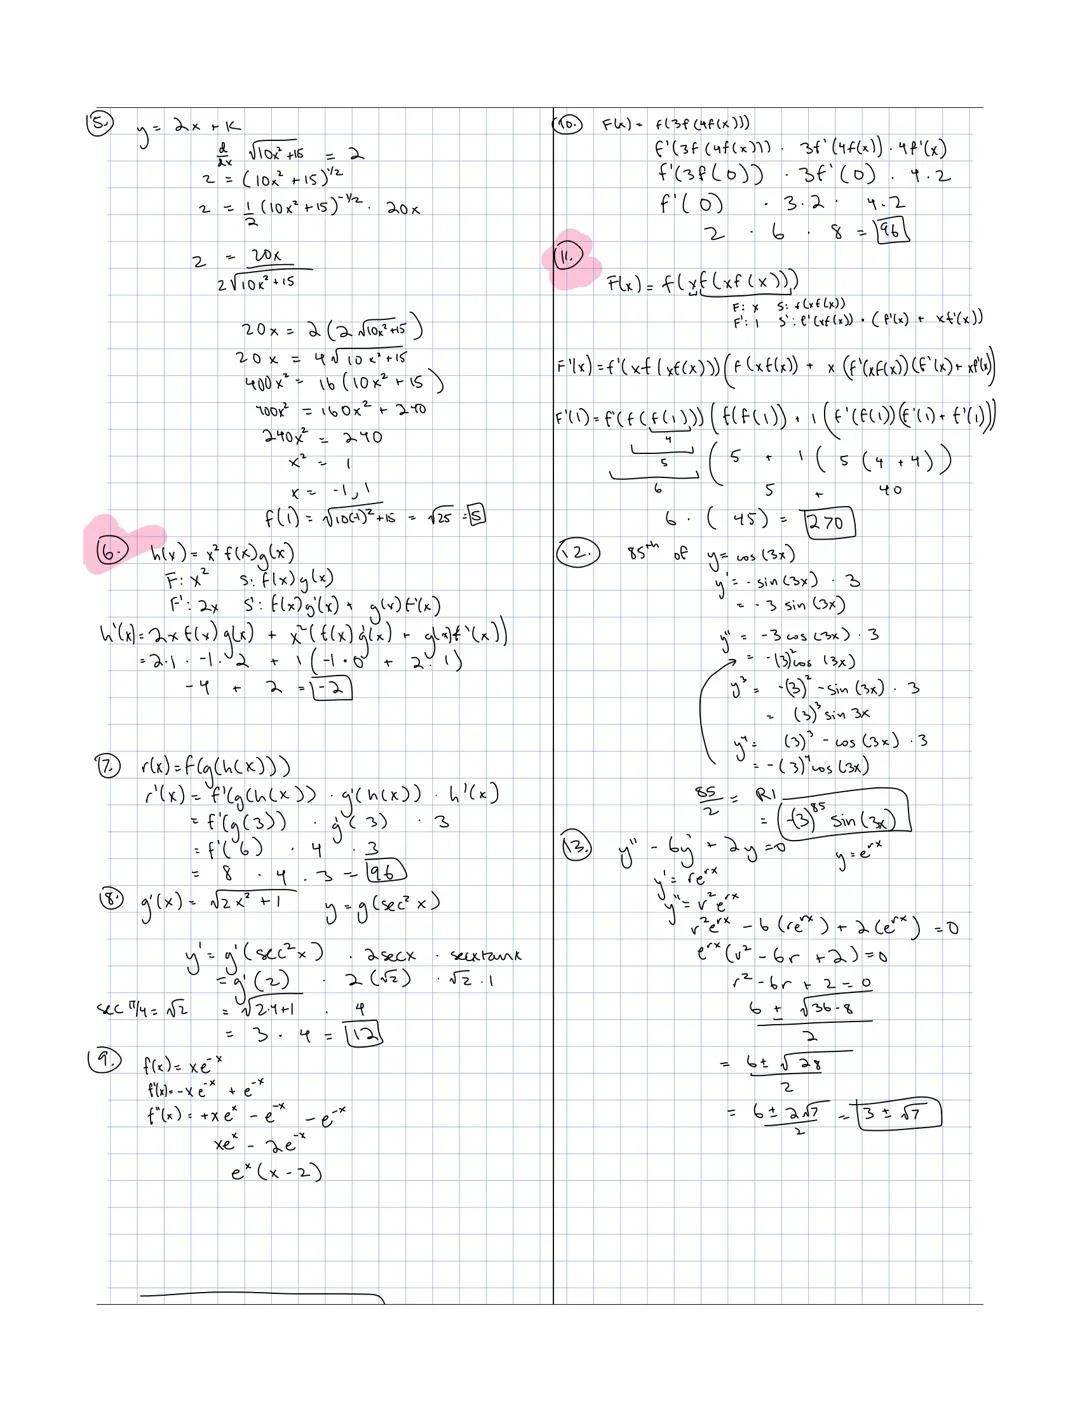 5.
y = 2x + K
d/dx √10x² +15 = 2
2 = (10x² + 15)^1/2
2 = 1/2 (10x² + 15)^-1/2 · 20x
2 = 20x / 2√10x² + 15
20x = 2 (2 √10x²+15)
20x = 4√10x²+15
400x² = 16 (10x² + 15)
400x² = 160x² + 240
240x² = 240
x² = 1
x = -1, 1
f(1) = √10(1)² +15 = √25 = 5
6. h(x) = x² f(x)g(x)
F: x² S: f(x)g(x)
F': 2x S': f(x)g'(x) + g(x)f'(x)
h'(x) = 2x f(x) g(x) + x² (f(x) g'(x) + g(x)f'(x))
= 2·1 · -1 · 2 + 1 (-1 · 0 + 2 · 1)
-4 + 2 = -2
7. r(x) = f(g(h(x)))
r'(x) = f'(g(h(x)) · g'(h(x)) · h'(x)
= f'(g(3)) · g'(3) · 3
= f'(6) · 4 · 3
= 8 · 4 · 3 = 96
8. g'(x) = √2x² +1 y = g(sec² x)
y' = g'(sec² x) · 2 secx · secxtanx
= g'(2) · 2 (√2) · √2 · 1
sec π/4 = √2 = √2·4+1 · 4
= 3 · 4 = 12
9. f(x) = xe^-x
f'(x) = -xe^-x + e^-x
f''(x) = +xe^x - e^-x - e^-x
xe^x - 2e^-x
e^x (x - 2)
10. F(x) = f(3f(4f(x)))
f'(3f(4f(x))) · 3f'(4f(x)) · 4f'(x)
f'(3f(0)) · 3f'(0) · 4·2
f'(0) · 3·2 · 4·2
2 · 6 · 8 = 96
11.
F(x) = f(xf(xf(x)))
F: x S: f(xf(x))
F': 1 S': f'(xf(x)) · (f'(x) + xf'(x))
F'(x) = f'(xf(xf(x))) (f(xf(x)) + x (f'(xf(x)) (f'(x) + xf'(x))
F'(1) = f'(f(f(1))) (f(f(1)) + 1 (f'(f(1)) (f'(1) + f'(1)))
4
5 ( 5 + 1 ( 5 (4 + 4))
6 5 + 40
6 · ( 45) = 270
12. 85th of y = cos (3x)
y' = - sin (3x) · 3
= -3 sin (3x)
y'' = -3 cos (3x) · 3
= -(3)² cos (3x)
y³ = -(3)² - sin (3x) · 3
= (3)³ sin 3x
y⁴ = (3)³ - cos (3x) · 3
= -(3)⁴ cos (3x)
85/2 = R1
= (-3)^85 sin (3x)
13. y'' - 6y' + 2y = 0 y = e^rx
y' = re^rx
y'' = r² e^rx
r² e^rx - 6 (re^rx) + 2 (e^rx) = 0
e^rx (r² - 6r + 2) = 0
r² - 6r + 2 = 0
6 ± √36-8 / 2
= 6 ± √28 / 2
= 6 ± 2√7 / 2 = 3 ± √7